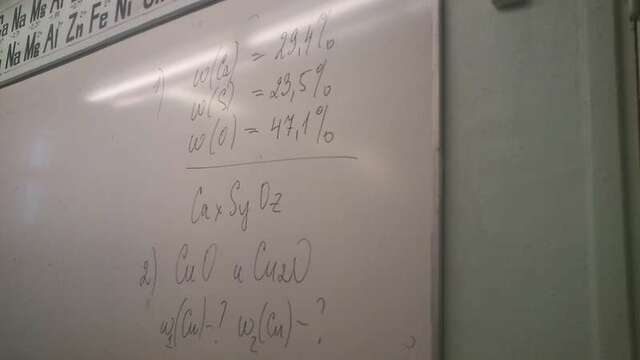 Na Mg Al
Na Mg Al Zn Fe Ni
1) w(Ca) = 29,4%
w(S) = 23,5%
w(O) = 47,1%
CaxSyOz
2) CuO и Cu2O
w1(Cu)-? w2(Cu)-?